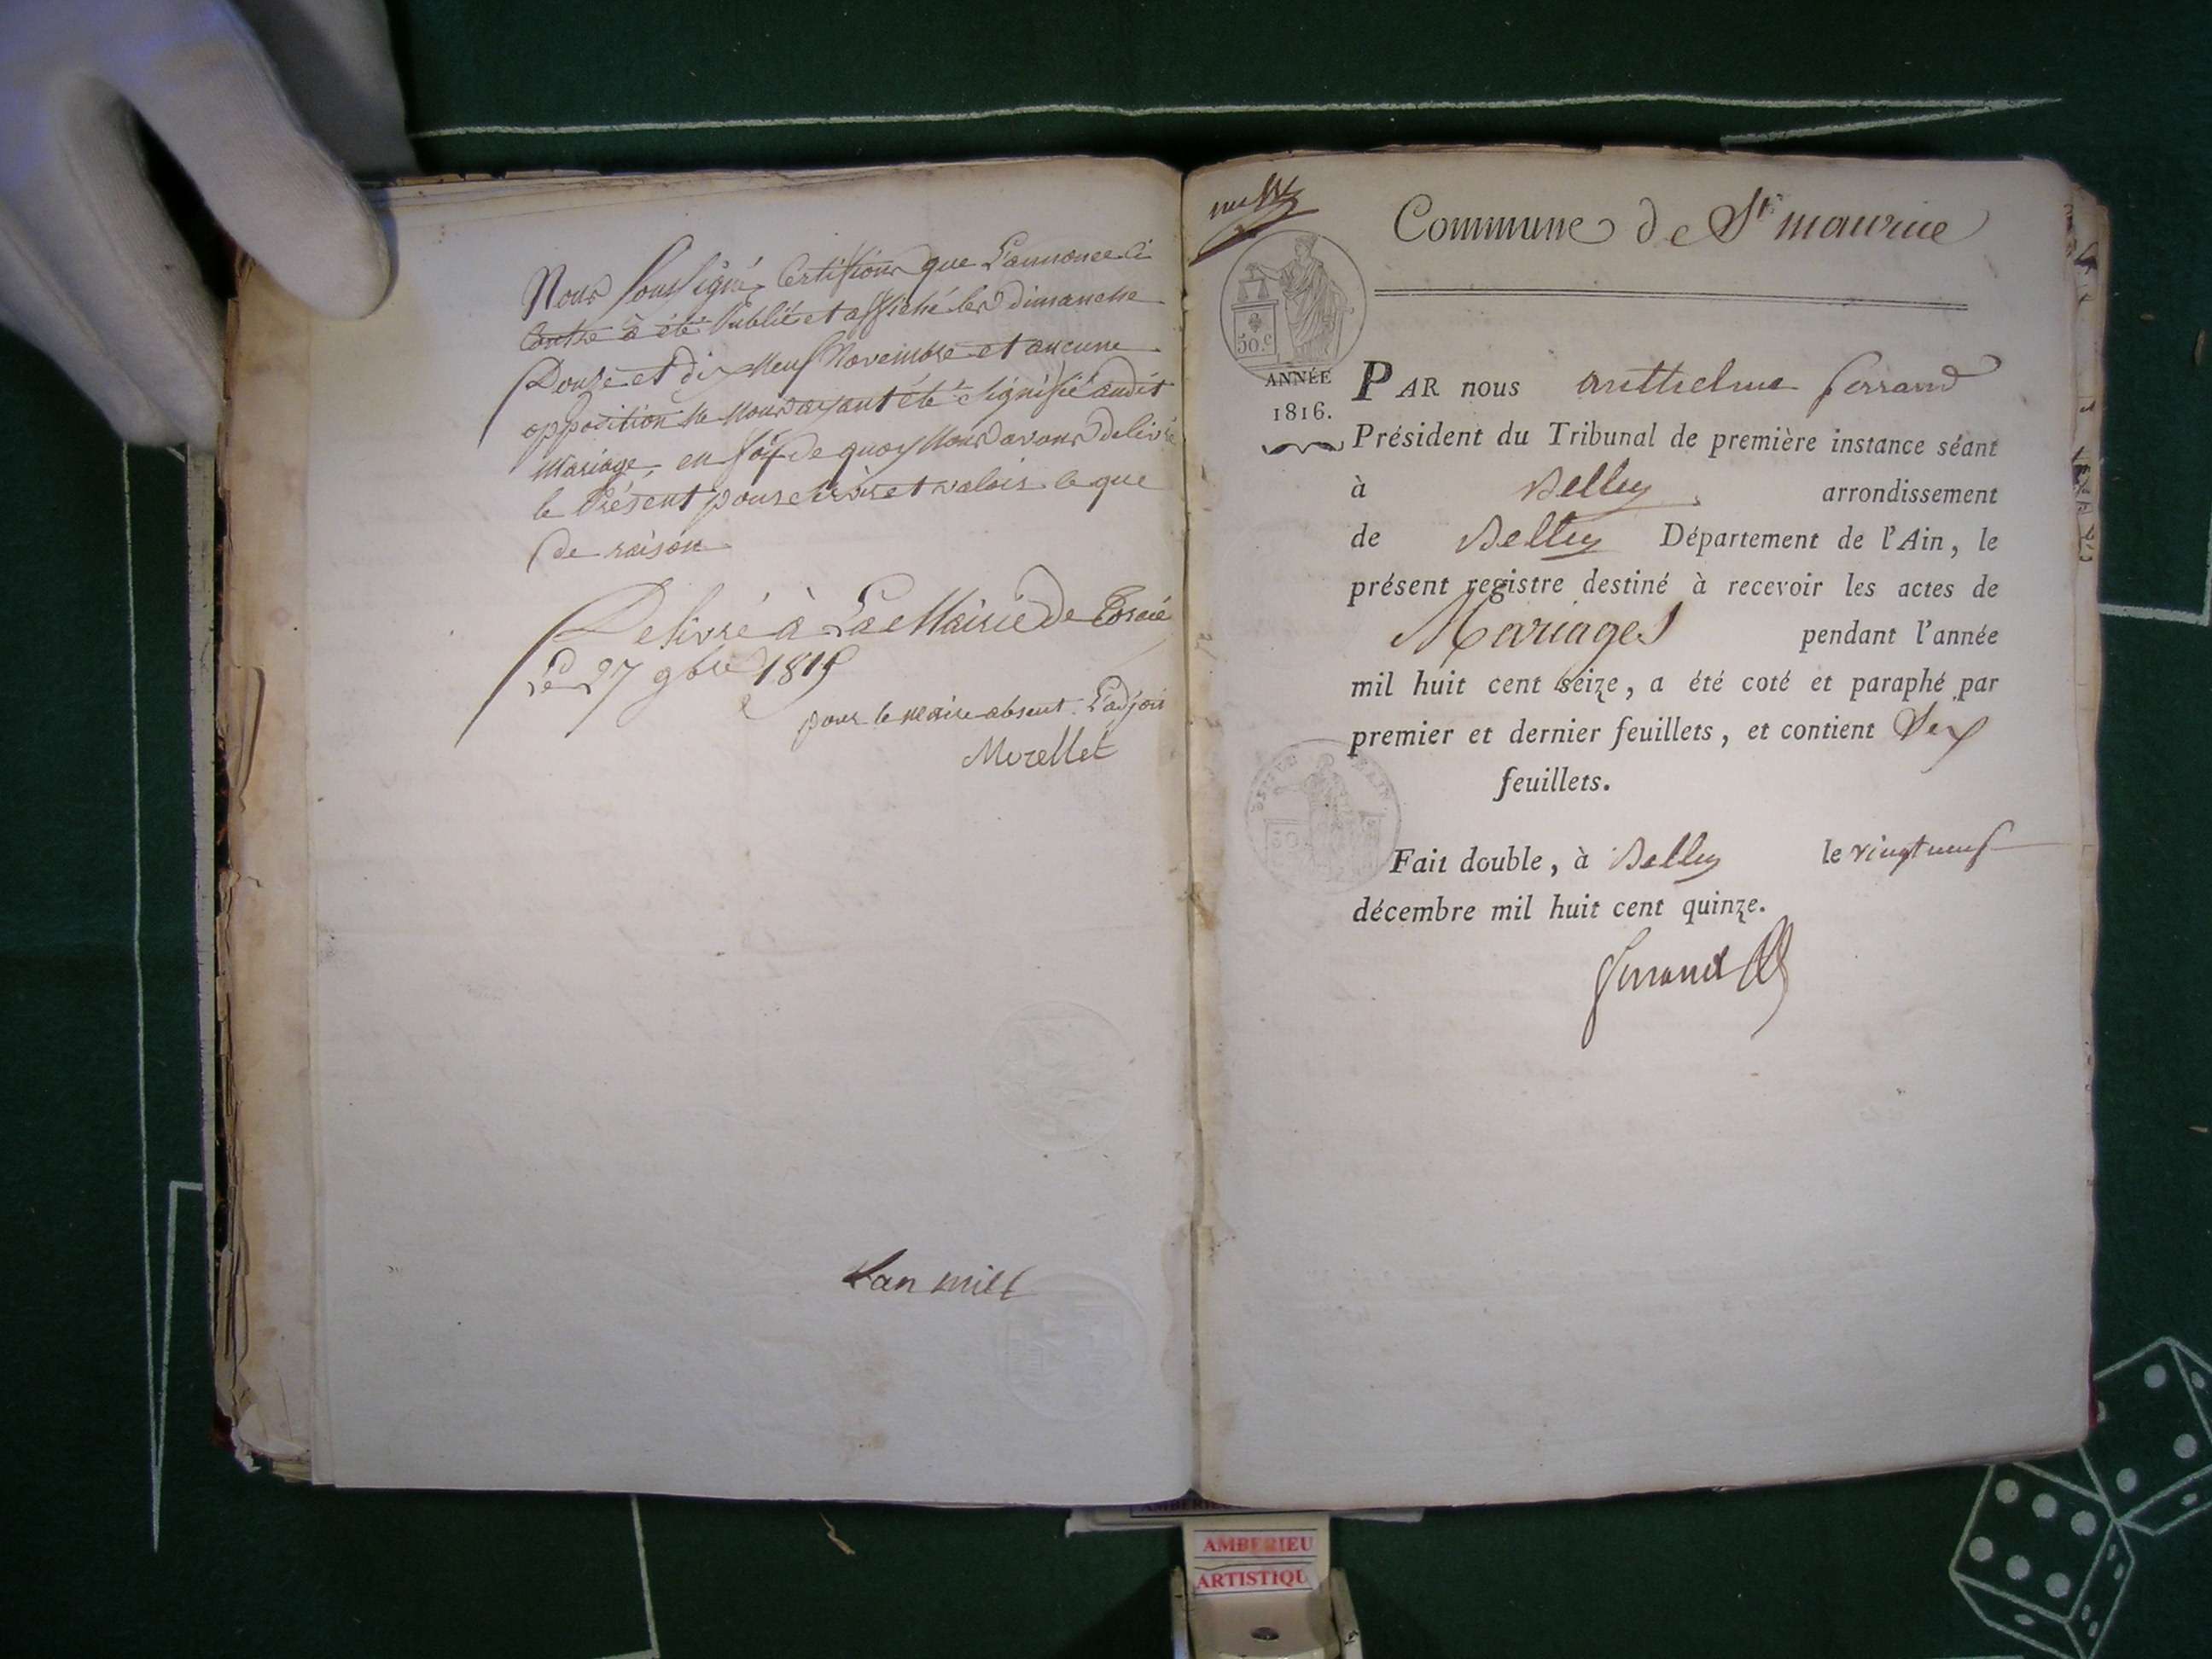 Nous Soussigné Certifions que L'annonce Ci
Contre à été Publié et affiché les dimanche
Douze et dix Neuf Novembre et aucune
opposition ne Nous ayant été Signifié audit
Mariage, en foy de quoy Nous avons Delivré
le Présent pour servir et valoir ce que
de raison
Delivré à La Mairie de Torcié
Le 27 9bre 1815
pour le maire absent L'adjoit
Morellet
Lan mill
Commune de St maurice
50.c
ANNÉE
1816.
PAR nous anthelme ferrand
Président du Tribunal de première instance séant
à Belley arrondissement
de Belley Département de l'Ain, le
présent registre destiné à recevoir les actes de
Mariages pendant l'année
mil huit cent seize, a été coté et paraphé par
premier et dernier feuillets, et contient Six
feuillets.
Fait double, à Belley le vingt neuf
décembre mil huit cent quinze.
ferrand
AMBERIEU
AMBERIEU
ARTISTIQU